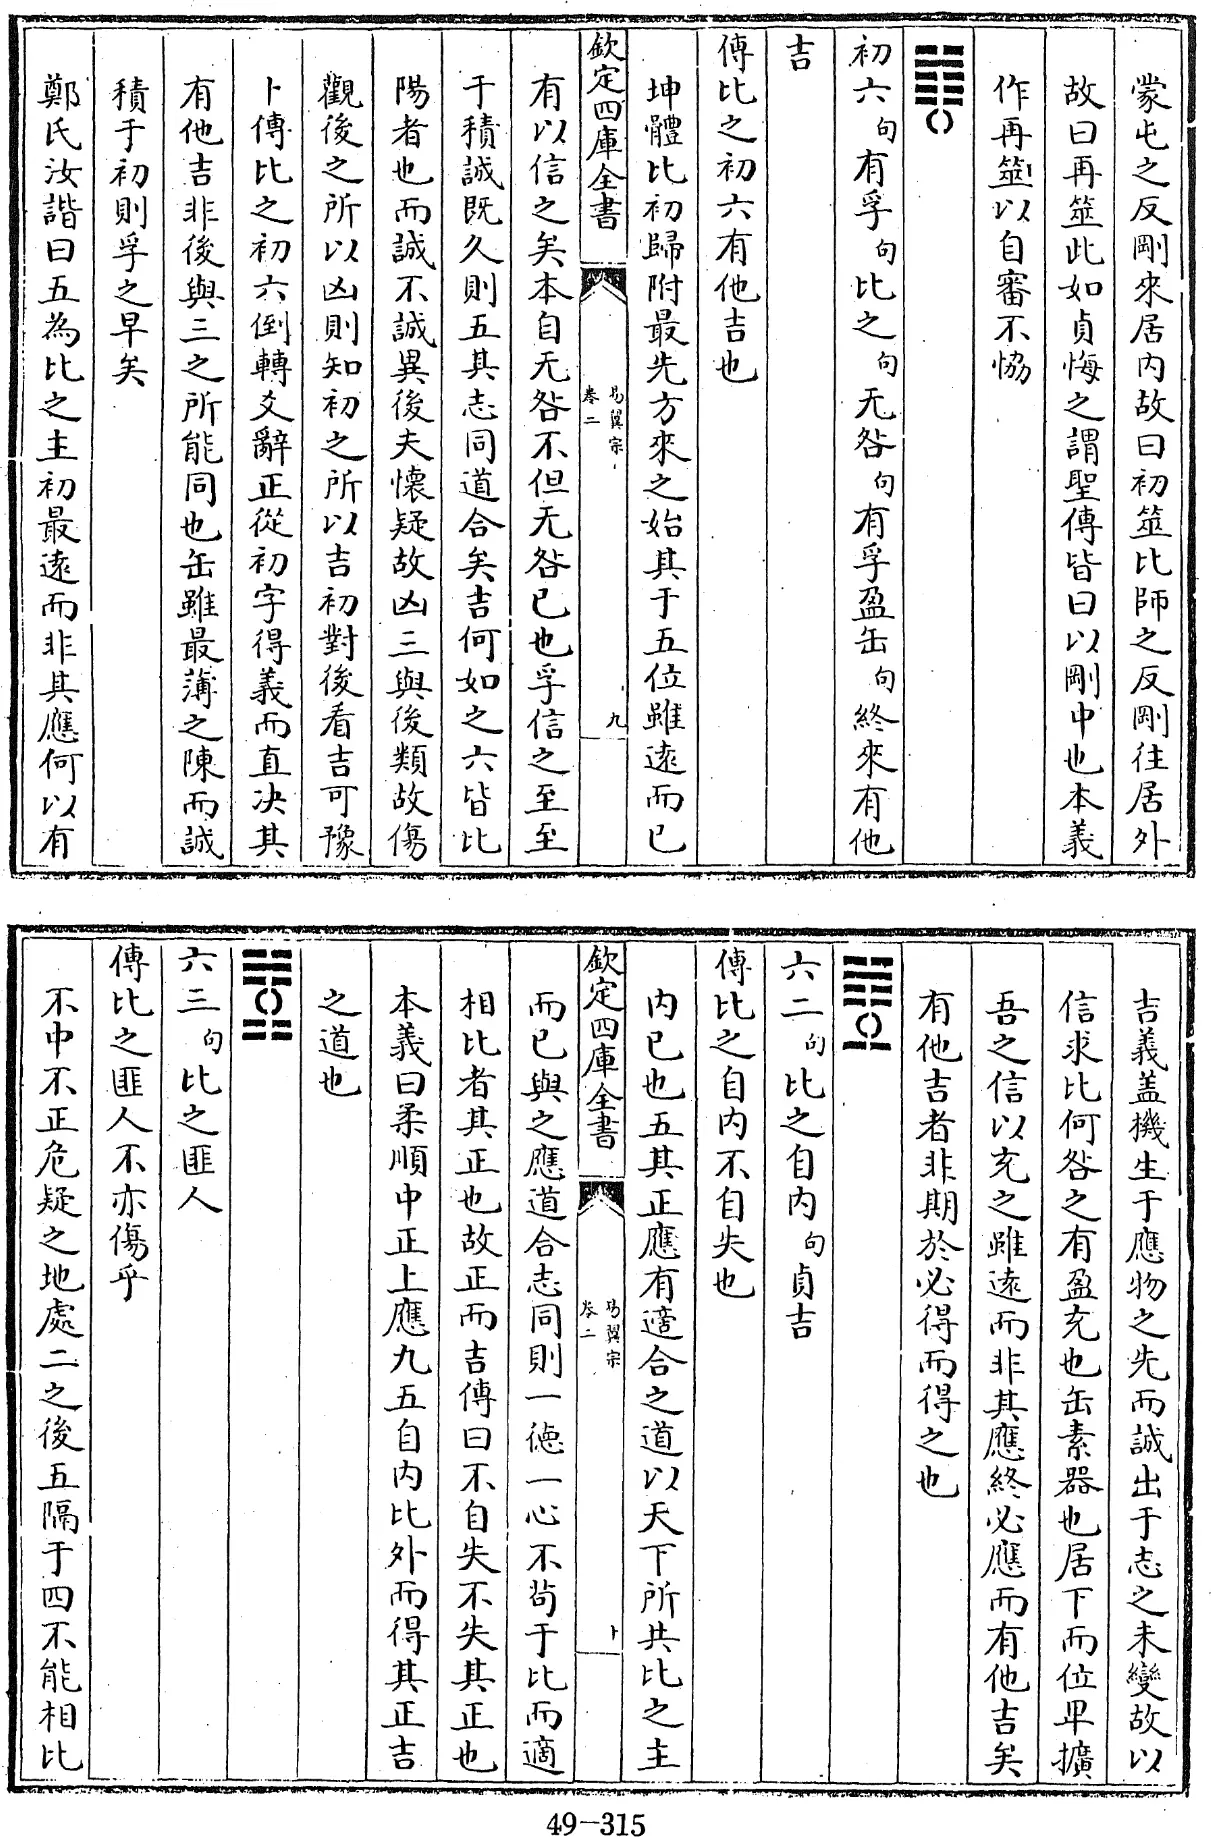 蒙屯之反剛來居内故曰初筮比師之反剛往居外
故曰再筮此如貞悔之謂聖傳皆曰以剛中也本義
作再筮以自審不恊
初六句有孚句比之句无咎句有孚盈缶句終來有他
吉
傳比之初六有他吉也
坤體比初歸附最先方來之始其于五位雖遠而已
欽定四庫全書
易翼宗
卷二
九
有以信之矣本自无咎不但无咎已也孚信之至至
于積誠既久則五其志同道合矣吉何如之六皆比
陽者也而誠不誠異後夫懐疑故凶三與後類故傷
觀後之所以凶則知初之所以吉初對後看吉可豫
卜傳比之初六倒轉爻辭正從初字得義而直决其
有他吉非後與三之所能同也缶雖最薄之陳而誠
積于初則孚之早矣
鄭氏汝諧曰五為比之主初最遠而非其應何以有
吉義盖機生于應物之先而誠出于志之未變故以
信求比何咎之有盈充也缶素器也居下而位卑擴
吾之信以充之雖遠而非其應終必應而有他吉矣
有他吉者非期於必得而得之也
六二句比之自内句貞吉
傳比之自内不自失也
内已也五其正應有適合之道以天下所共比之主
欽定四庫全書
易翼宗
卷二
十
而已與之應道合志同則一德一心不茍于比而適
相比者其正也故正而吉傳曰不自失不失其正也
本義曰柔順中正上應九五自内比外而得其正吉
之道也
六三句比之匪人
傳比之匪人不亦傷乎
不中不正危疑之地處二之後五隔于四不能相比
49-315